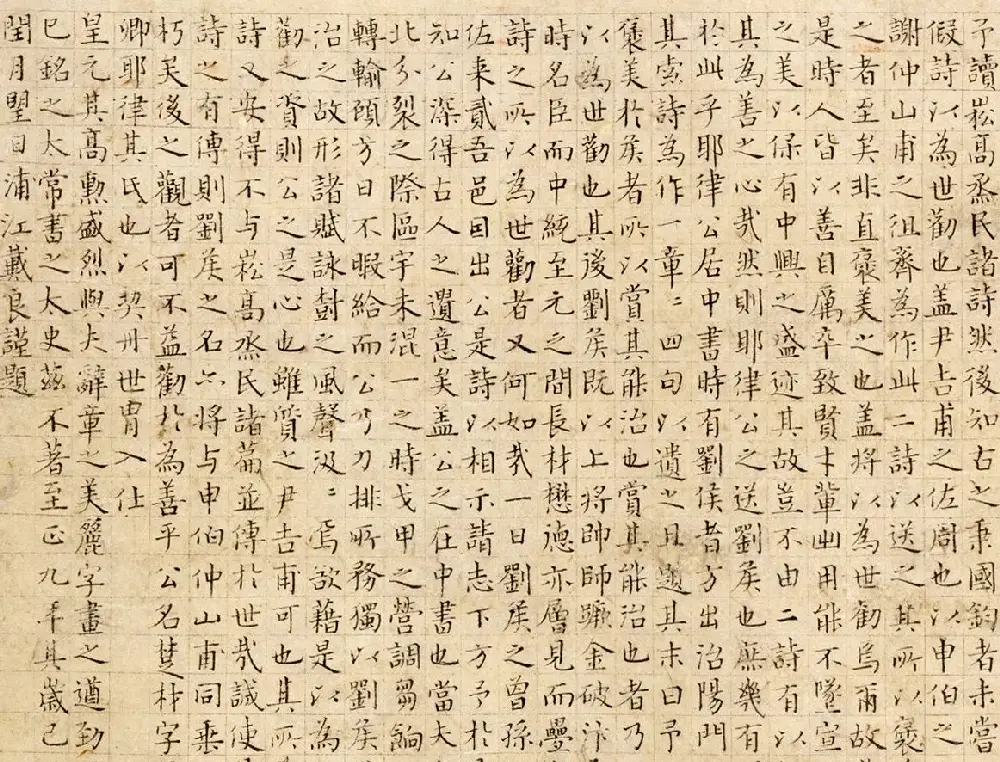 予讀崧高烝民諸詩然後知古之秉國鈞者未嘗
假詩以為世勸也蓋尹吉甫之佐周也以申伯之
謝仲山甫之徂齊為作此二詩以送之其所以褒
之者至矣非直褒美之也蓋將以為世勸焉爾故
是時人皆以善自厲卒致賢才輩出用能不墜宣
之美以保有中興之盛迹其故豈不由二詩有以
其為善之心哉然則耶律公之送劉侯也庶幾有
於此乎耶律公居中書時有劉侯者方出治陽門
其索詩為作一章二四句以遺之且題其末曰予
褒美於侯者所以賞其能治也賞其能治也者乃
以為世勸也其後劉侯既以上將帥師蹶金破汴
時名臣而中統至元之間長材懋德亦層見而疊
詩之所以為世勸者又何如哉一日劉侯之曾孫
佐來貳吾邑因出公是詩以相示請志下方予於
知公深得古人之遺意矣蓋公之在中書也當夫
北分裂之際區宇未混一之時戈甲之營調芻餉
轉輸顧方日不暇給而公乃力排所務獨以劉侯
治之故形諸賦詠尌之風聲汲二焉欲藉是以為
勸之資則公之是心也雖質之尹吉甫可也其所
詩又安得不与崧高烝民諸篇並傳於世哉誠使
詩之有傳則劉侯之名亦將与申伯仲山甫同垂
朽矣後之觀者可不益勸於為善乎公名楚材字
卿耶律其氏也以契丹世冑入仕
皇元其高勳盛烈與夫辭章之美麗字畫之遒勁
已銘之太常書之太史茲不著至正九年其歲己
閏月朢日浦江戴良謹題